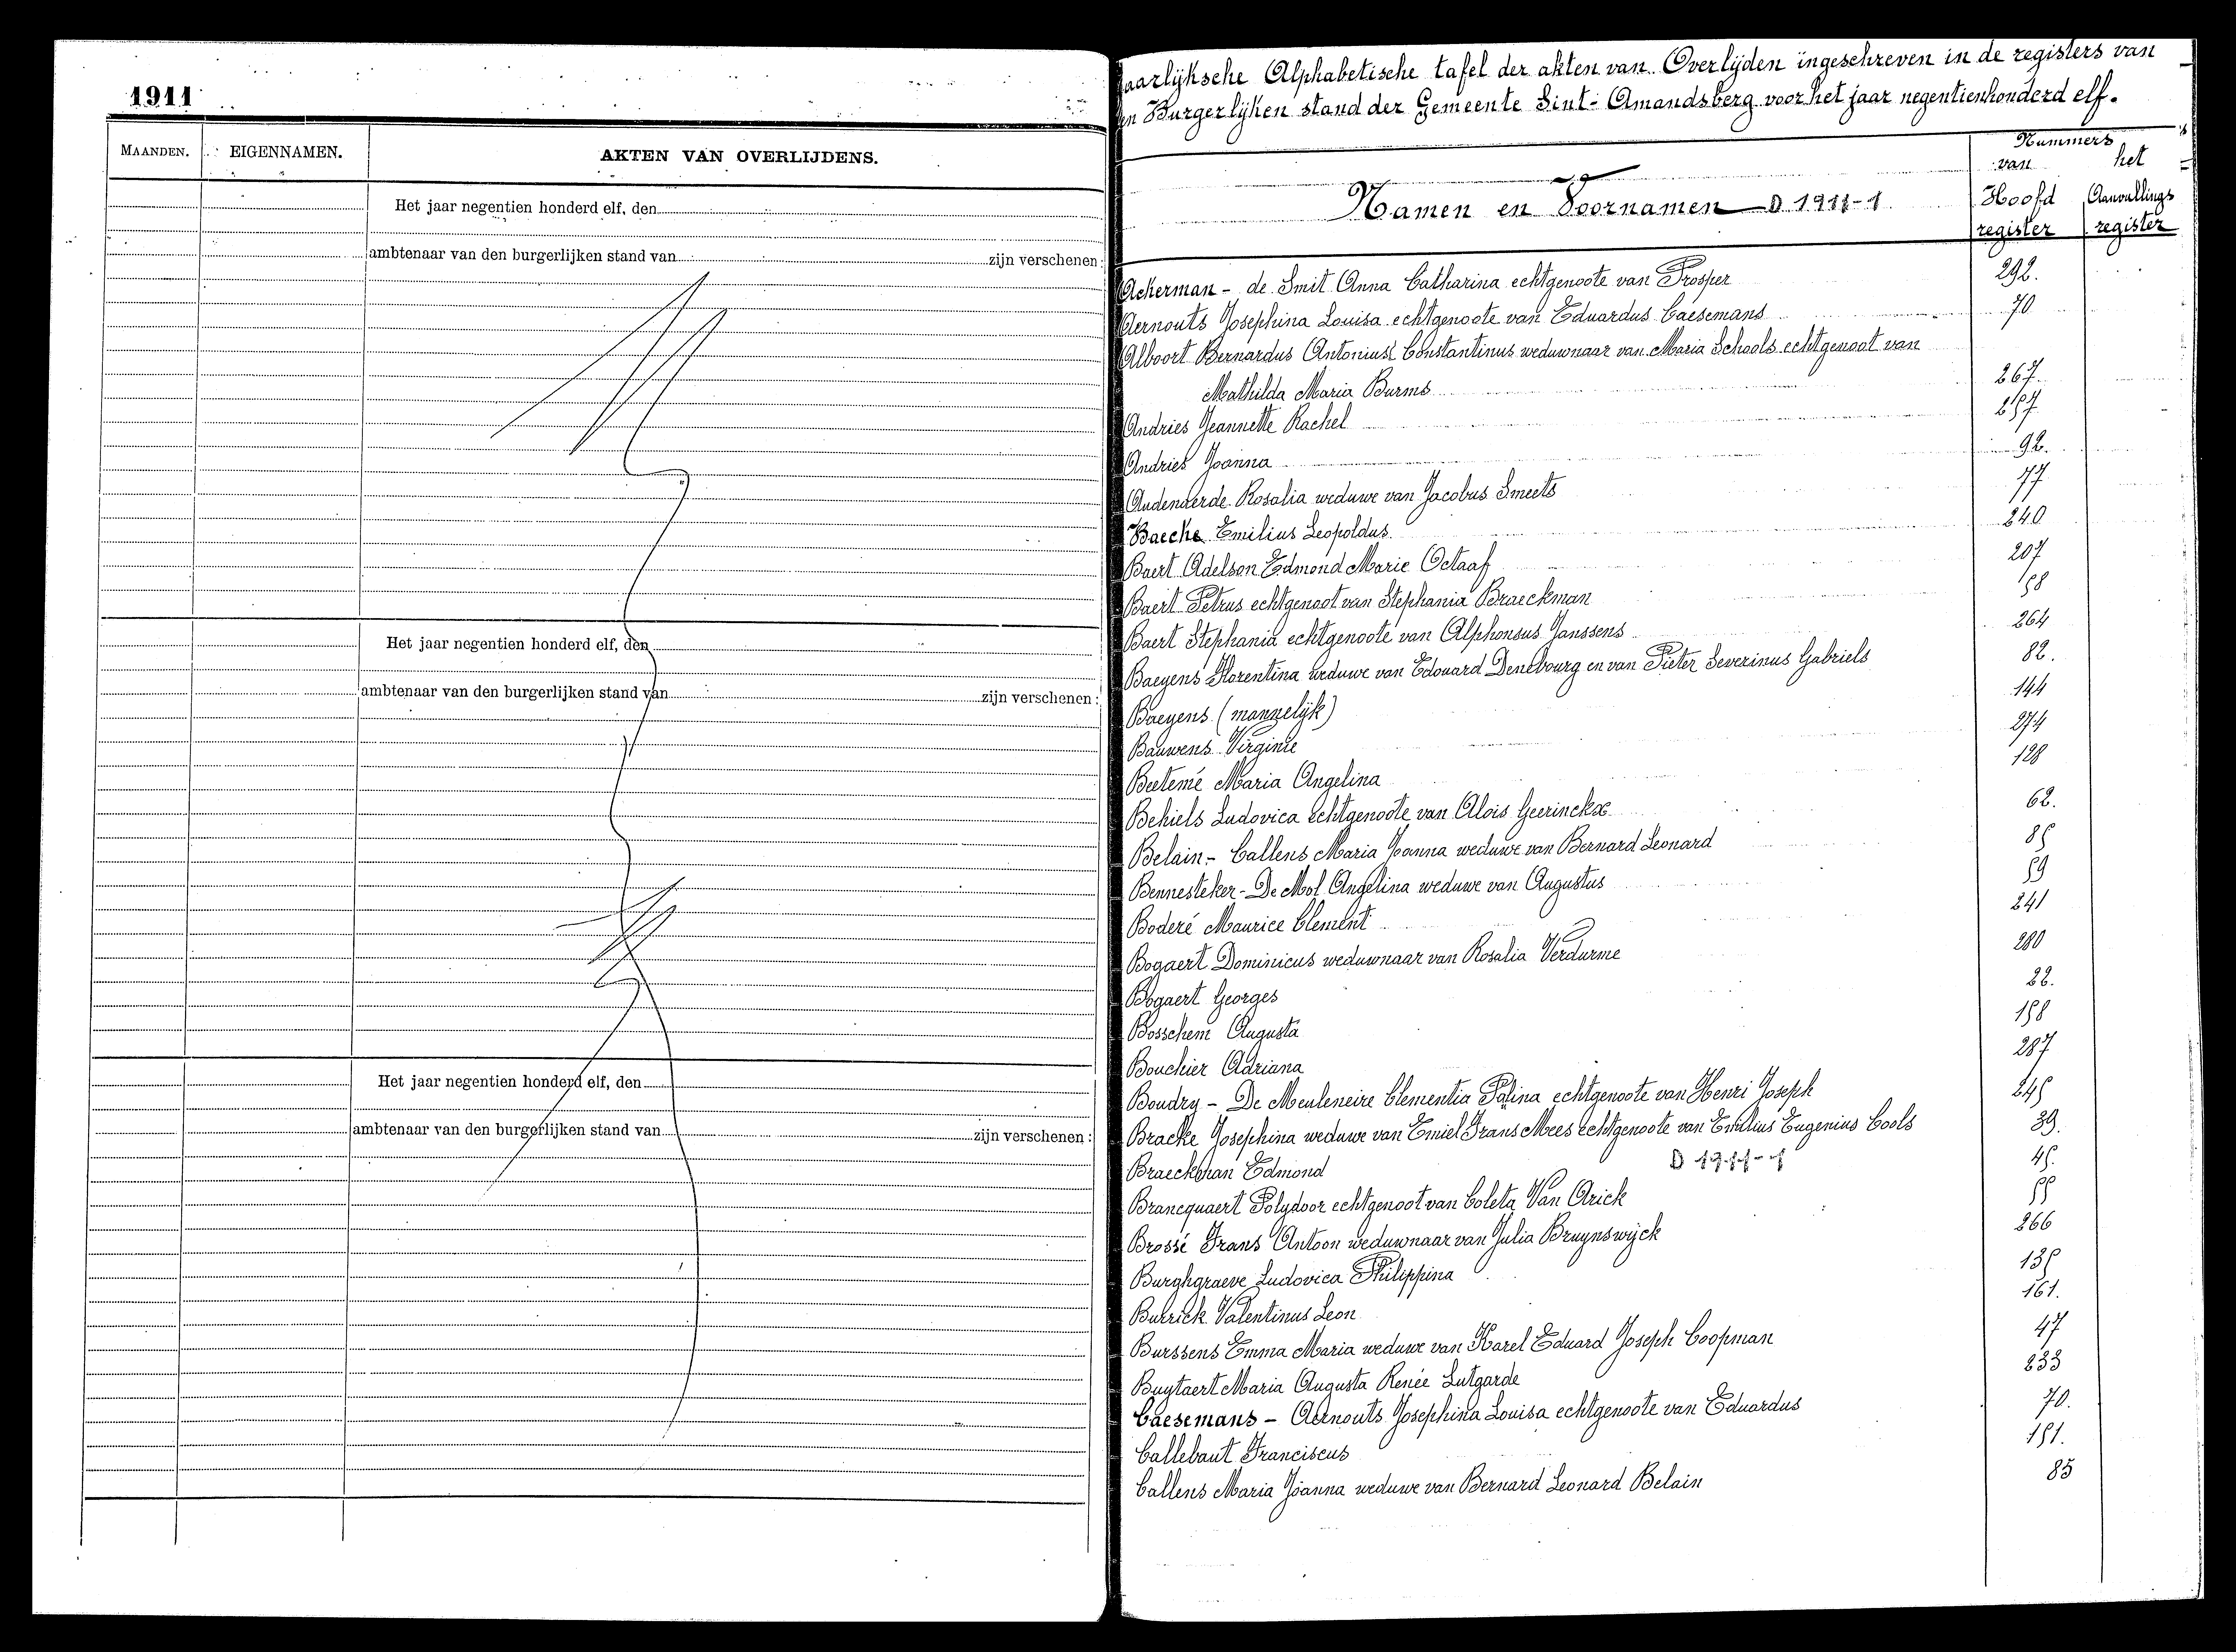 1911
MAANDEN. EIGENNAMEN. AKTEN VAN OVERLIJDENS.
Het jaar negentien honderd elf, den
ambtenaar van den burgerlijken stand van zijn verschenen:
Het jaar negentien honderd elf, den
ambtenaar van den burgerlijken stand van zijn verschenen:
Het jaar negentien honderd elf, den
ambtenaar van den burgerlijken stand van zijn verschenen:
aarlijksche Alphabetische tafel der akten van Overlijden ingeschreven in de registers van
en Burgerlijken stand der Gemeente Sint-Amandsberg voor het jaar negentienhonderd elf.
Nummers
van het
Namen en Voornamen D 1911-1 Hoofd Aanvullings
register register
Ackerman - de Smit Anna Catharina echtgenoote van Prosper 292.
Aernouts Josephina Louisa echtgenoote van Eduardus Caesemans 70
Alboort Bernardus Antonius Constantinus weduwnaar van Maria Schools echtgenoot van
Mathilda Maria Burms 267
Andries Jeannette Rachel 257
Andries Joanna 92.
Audenaerde Rosalia weduwe van Jacobus Smeets 77
Baecke Emilius Leopoldus 240
Baert Adelson Edmond Marie Octaaf 207
Baert Petrus echtgenoot van Stephania Braeckman 58
Baert Stephania echtgenoote van Alphonsus Janssens 264
Baeyens Florentina weduwe van Edouard Denebourg en van Pieter Severinus Gabriels 82.
Baeyens (mannelijk) 144
Bauwens Virginie 274
Beetemé Maria Angelina 128
Behiels Ludovica echtgenoote van Alois Geerinckx 62.
Belain - Callens Maria Joanna weduwe van Bernard Leonard 85
Bennesteker - De Mol Angelina weduwe van Augustus 59
Boderé Maurice Clement 241
Bogaert Dominicus weduwnaar van Rosalia Verdurme 280
Bogaert Georges 22.
Bosschem Augusta 158
Bouchier Adriana 287
Boudry - De Meuleneire Clementia Palina echtgenoote van Henri Joseph 245
Bracke Josephina weduwe van Emiel Frans Mees echtgenoote van Emilius Eugenius Cools 39.
Braeckman Edmond D 1911-1 45.
Brancquaert Polydoor echtgenoot van Coleta Van Arick 55
Brossé Frans Antoon weduwnaar van Julia Bruynswijck 266
Burghgraeve Ludovica Philippina 135
Burrick Valentinus Leon 161.
Burssens Emma Maria weduwe van Karel Eduard Joseph Coopman 47
Buytaert Maria Augusta Renée Lutgarde 233
Caesemans - Aernouts Josephina Louisa echtgenoote van Eduardus 70.
Callebaut Franciscus 151.
Callens Maria Joanna weduwe van Bernard Leonard Belain 85